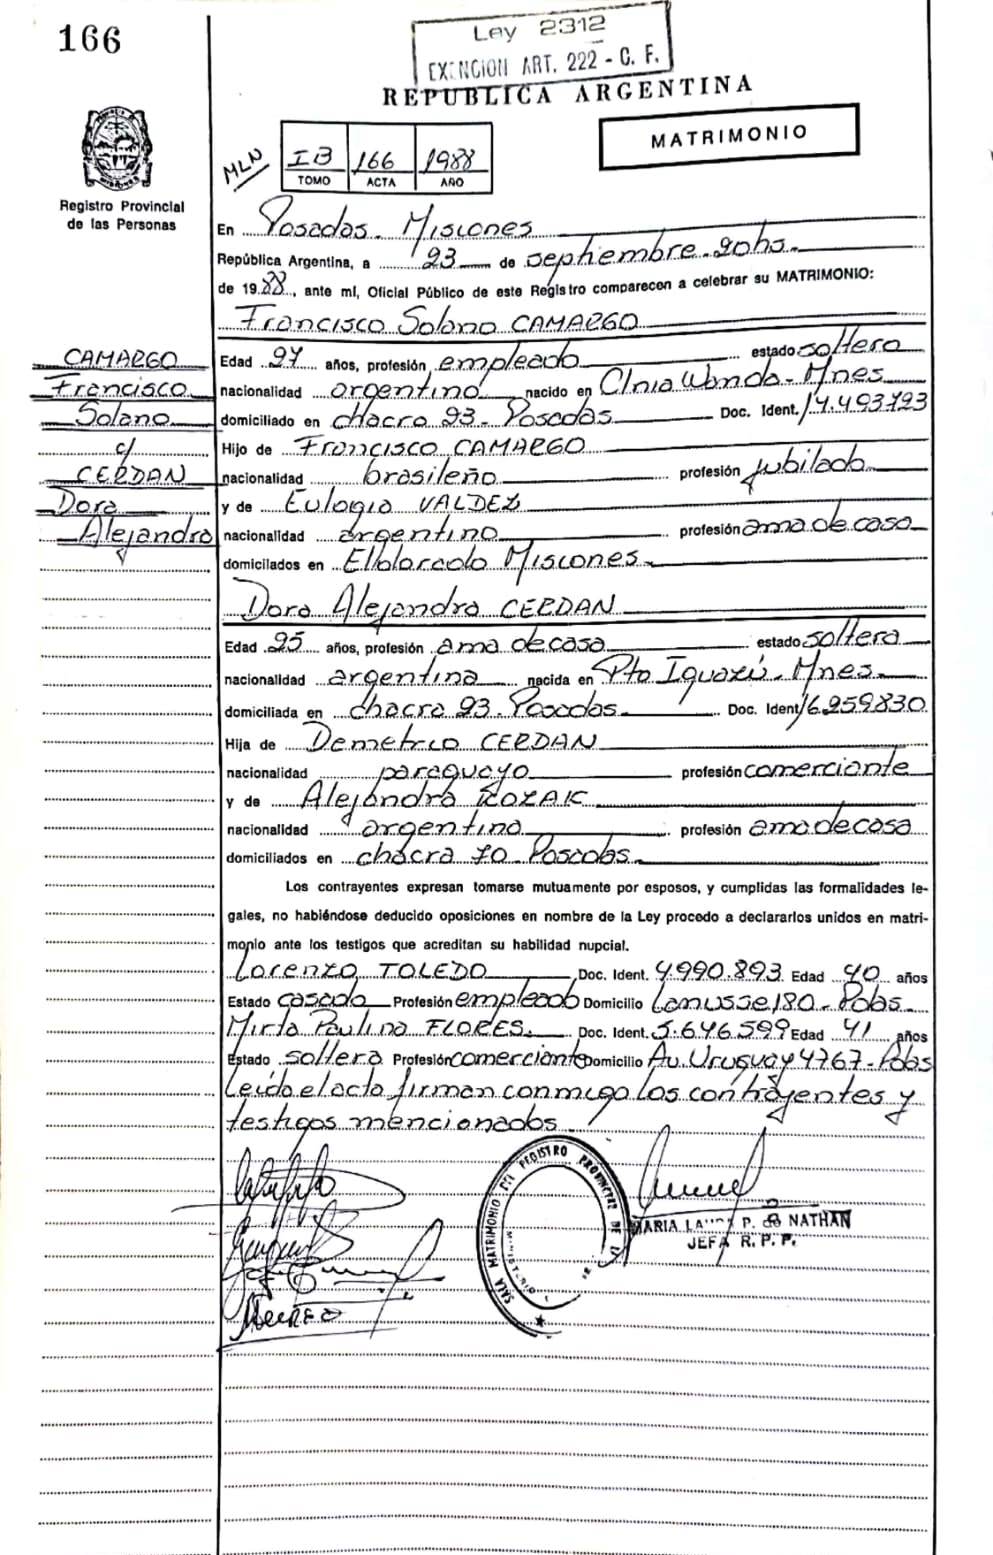 166
Ley 2312
EXENCION ART. 222 - C. F.
REPUBLICA ARGENTINA
MATRIMONIO
MLN
IB 166 1988
TOMO ACTA AÑO
Registro Provincial
de las Personas
En Posadas. Misiones
República Argentina, a 23 de septiembre. 20hs.
de 1988, ante mí, Oficial Público de este Registro comparecen a celebrar su MATRIMONIO:
Francisco Solano CAMARGO
CAMARGO
Francisco
Solano
c/
CERDAN
Dora
Alejandra
Edad 27 años, profesión empleado estado soltero
nacionalidad argentino nacido en Clnia Wanda - Mnes
domiciliado en chacra 23. Posadas Doc. Ident. 14.493.723
Hijo de Francisco CAMARGO
nacionalidad brasileño profesión jubilado
y de Eulogia VALDEZ
nacionalidad argentina profesión ama de casa
domicilados en Eldorado Misiones
Dora Alejandra CERDAN
Edad 25 años, profesión ama de casa estado soltera
nacionalidad argentina nacida en Pto Iguazú. Mnes.
domiciliada en chacra 23. Posadas Doc. Ident 16.259.830
Hija de Demetrio CERDAN
nacionalidad paraguayo profesión comerciante
y de Alejandra ROZAK
nacionalidad argentina profesión ama de casa
domiciliados en chacra 70 - Posadas.
Los contrayentes expresan tomarse mutuamente por esposos, y cumplidas las formalidades le-
gales, no habiéndose deducido oposiciones en nombre de la Ley procedo a declararlos unidos en matri-
monio ante los testigos que acreditan su habilidad nupcial.
Lorenzo TOLEDO Doc. Ident. 4.990.893 Edad 40 años
Estado casado Profesión empleado Domicilio Lanusse 180 - Pdas.
Mirta Paulina FLORES. Doc. Ident. 5.646.599 Edad 41 años
Estado soltera Profesión comerciante Domicilio Av. Uruguay 4767 - Pdas
Leída el acta firman conmigo los contrayentes y
testigos mencionados.
SALA MATRIMONIO DEL REGISTRO PROVINCIAL DE LA
MARIA P. de NATHAN
JEFA R. P. P.